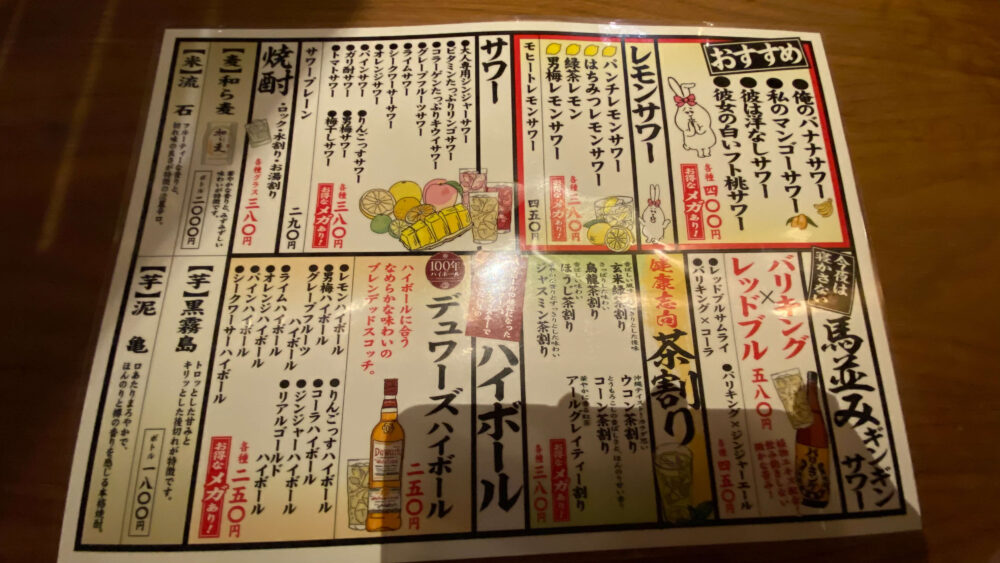 おすすめ
●俺のバナナサワー
●私のマンゴーサワー
●彼は洋なしサワー
●彼女の白いフト桃サワー
各種 四〇〇円
お得なメガあり!
レモンサワー
パンチレモンサワー
はちみつレモンサワー
緑茶レモン
男梅レモンサワー
各種 三八〇円
お得なメガあり!
モヒートレモンサワー 四五〇円
サワー
●大人専用ジンジャーサワー
●ビタミンたっぷりリンゴサワー
●コラーゲンたっぷりキウイサワー
●グレープフルーツサワー
●ライムサワー
●シークワーサーサワー
●オレンジサワー
●パインサワー
●ガリ酎サワー
●トマトサワー
●りんごっすサワー
●男梅サワー
●梅干しサワー
各種 三八〇円
お得なメガあり!
サワープレーン 二九〇円
焼酎
・ロック・水割り・お湯割り
各種グラス 三八〇円
【麦】和ら麦
華やかな香りと、みずみずしい
味わいが特徴です。
ボトル 二〇〇〇円
【米】流石
フルーティーな香りと、
今夜は寝かさない
馬並みギンギンサワー
バリキング×レッドブル 五八〇円
●レッドブルサムライ
●バリキング×コーラ
●バリキング×ジンジャーエール
各種 四五〇円
健康志向
茶割り
玄米緑茶割り
烏龍茶割り
ほうじ茶割り
ジャスミン茶割り
ウコン茶割り
コーン茶割り
アールグレイティー割り
各種 三八〇円
お得なメガあり!
ハイボール
100年ハイボール
デュワーズハイボール
二五〇円
ハイボールに合う
なめらかな味わいの
ブレンデッドスコッチ。
Dewar's
●レモンハイボール
●男梅ハイボール
●グレープフルーツハイボール
●ライムハイボール
●オレンジハイボール
●パインハイボール
●シークワーサーハイボール
●りんごっすハイボール
●コーラハイボール
●ジンジャーハイボール
●リアルゴールドハイボール
各種 二五〇円
お得なメガあり!
【芋】黒霧島
トロッとした甘みと
キリッとした後切れが特徴です。
【芋】泥亀
口あたりまろやかで、
ほんのりと樽の香りを感じる本格焼酎。
ボトル 一八〇〇円